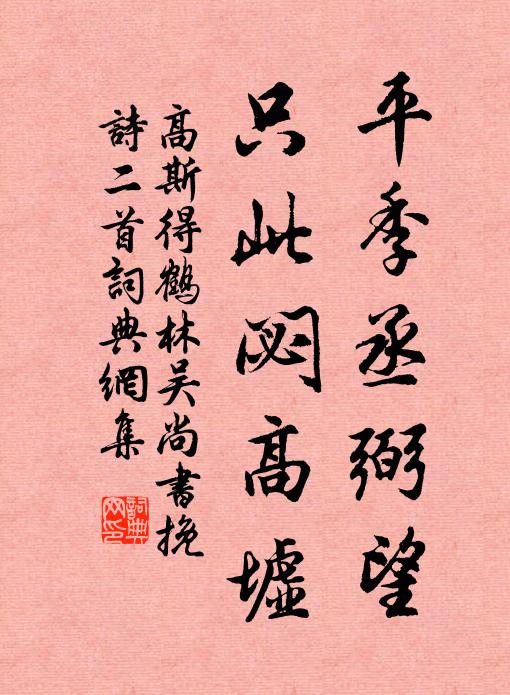 平季丞弼望
只此閟高墟
高斯得鶴林吴尚書挽
詩二首詞典網集
詞典
网印